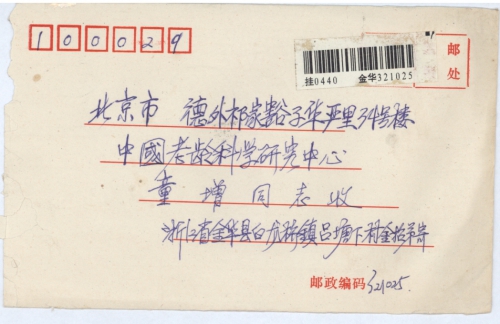 100029
邮
处
挂0440 金华321025
北京市 德外祁家豁子华严里34号楼
中國老龄科学研究中心
童增同志收
浙江省金华县白龙桥鎮吕塘下村金
邮政编码321025.